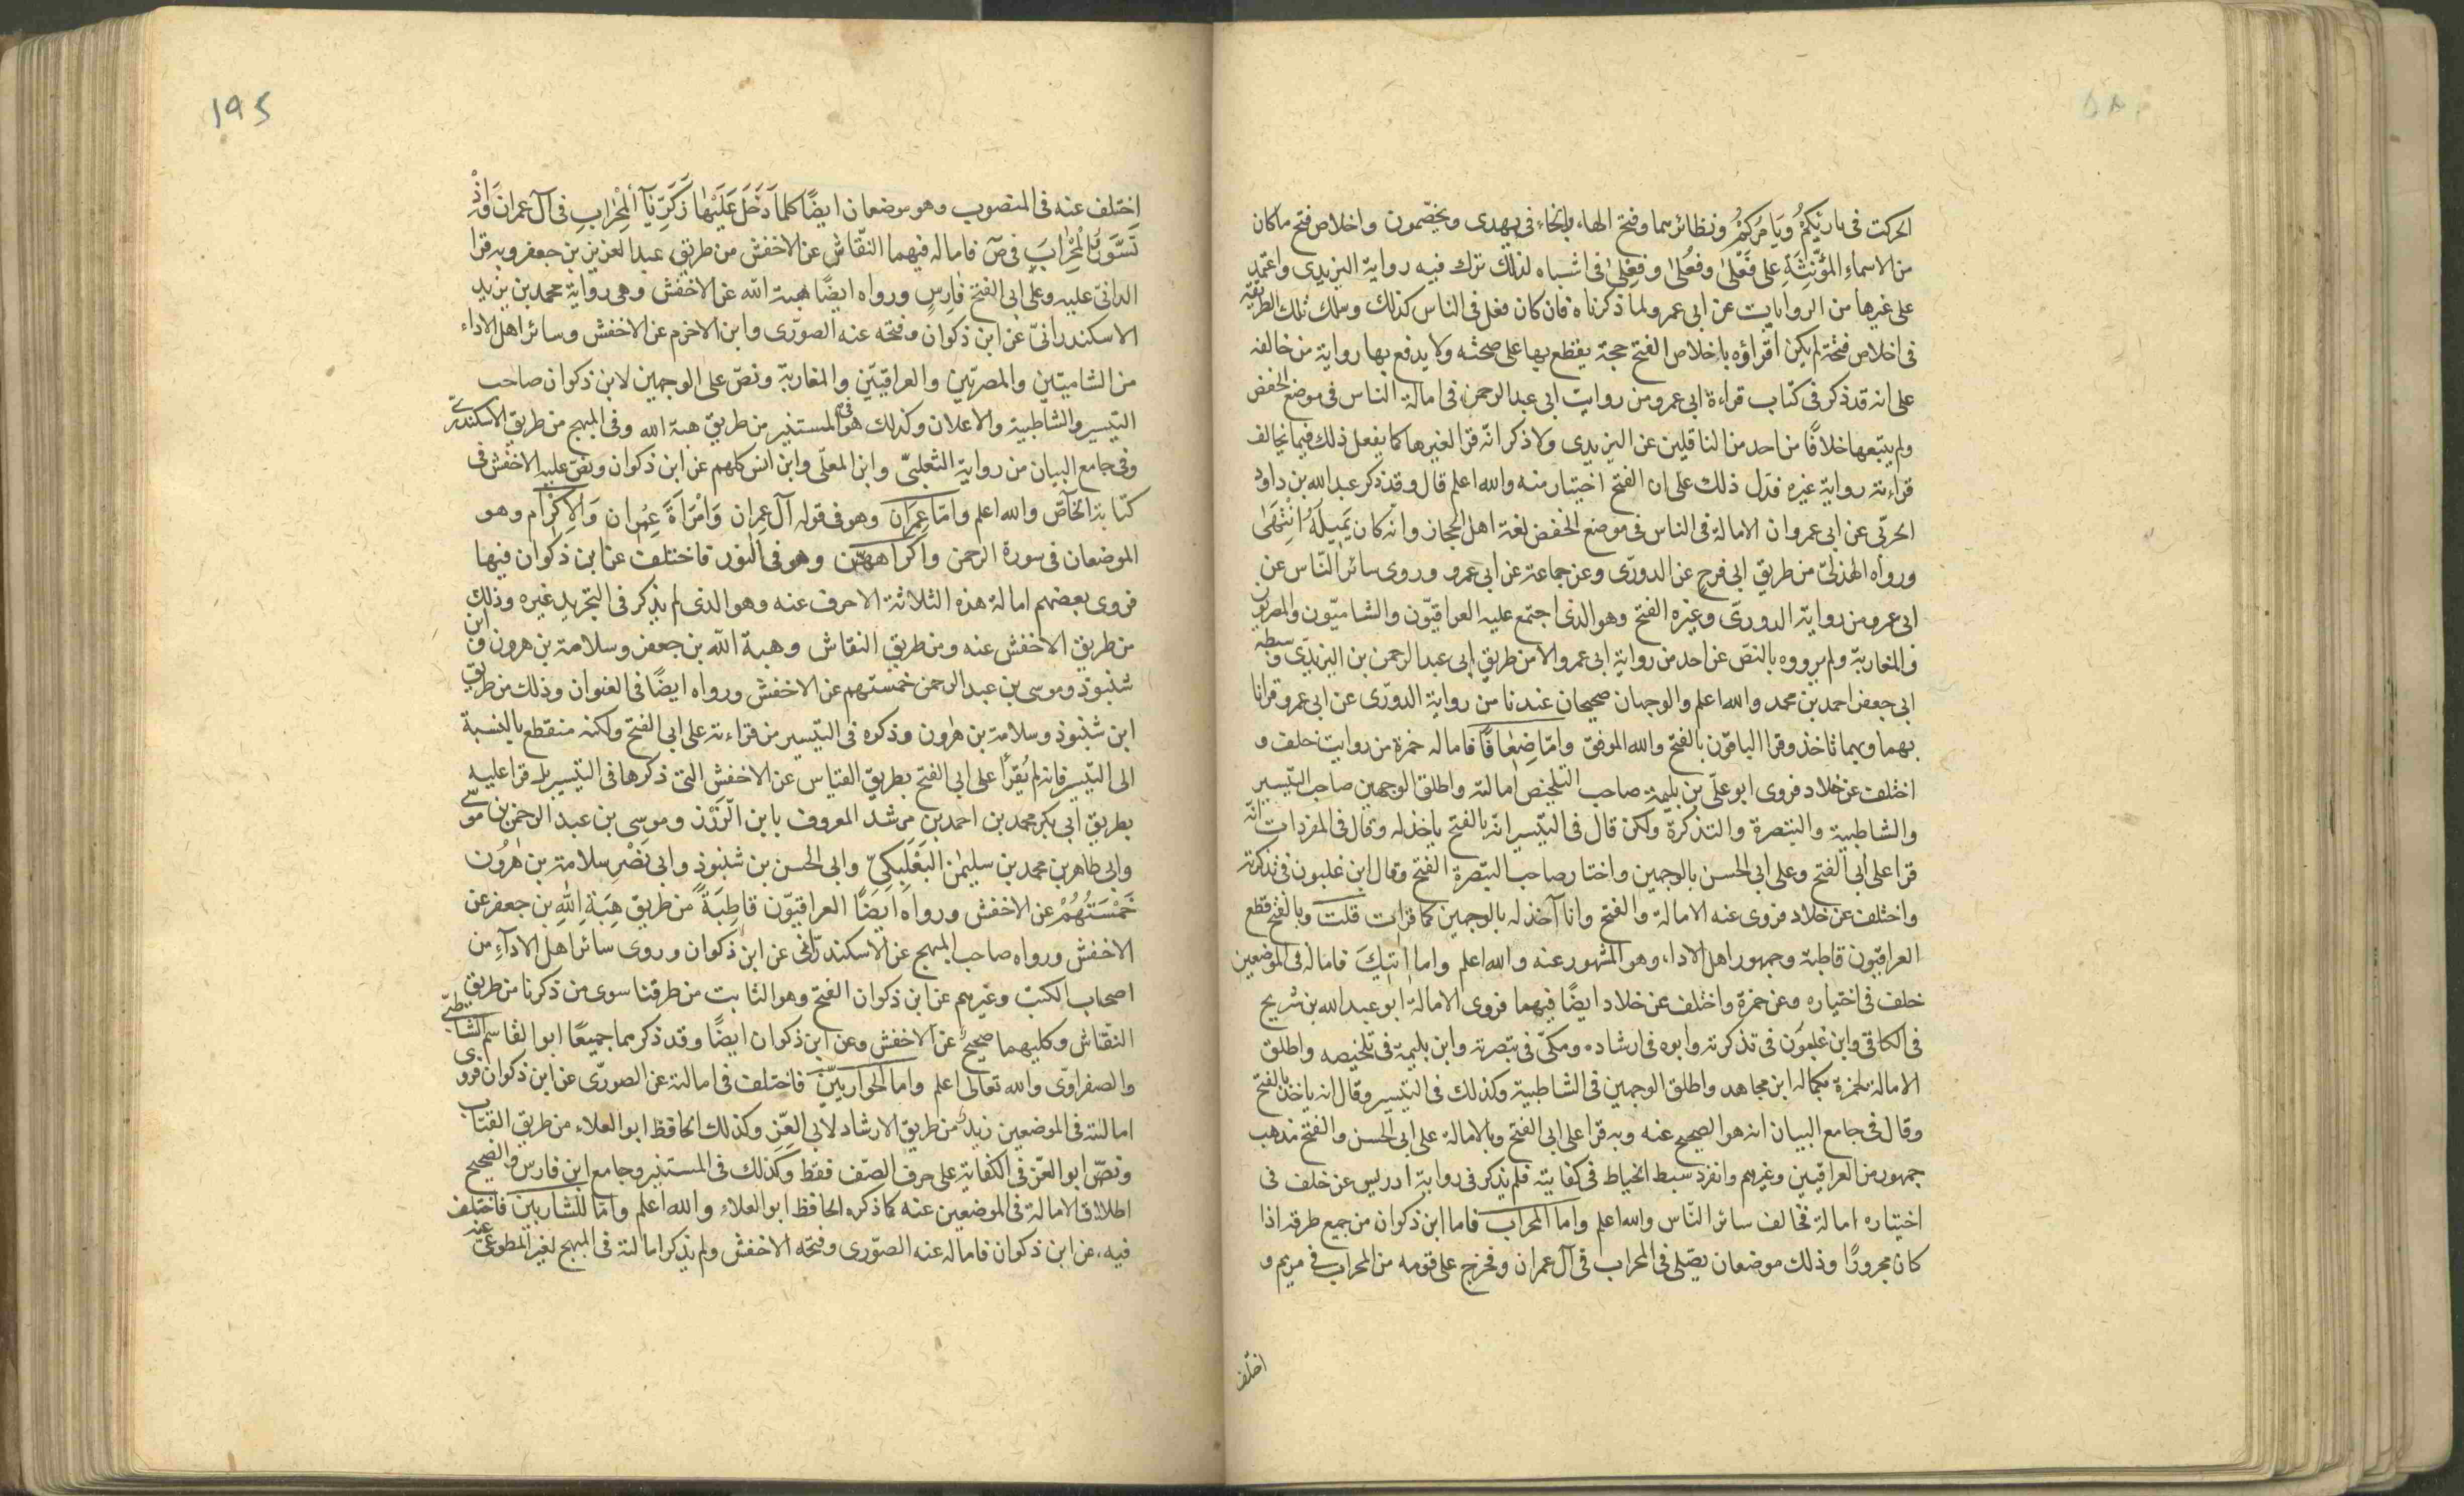 الحركت في بارئكم ويامركم ونظائرهما وفتح الهاء والخاء في يهدى ويخصّمون واخلاص فتح ما كان
من الاسماء المؤنثة على فَعْلى وفُعلى وفِعلى في اشباه لذلك ترك فيه رواية اليزيدى واعتمد
على غيرها من الروايات عن ابى عمرو لما ذكرناه فان كان فعل في الناس كذلك وسلك تلك الطريقة
في اخلاص فتحه لم يكن اقراؤه باخلاص الفتح حجة يقطع بها على صحته ولا يدفع بها رواية من خالفه
على انه قد ذكر في كتاب قراءة ابى عمرو من روايت ابى عبد الرحمن في امالة الناس في موضع الخفض
ولم يتبعها خلافًا من احد من الناقلين عن اليزيدى ولا ذكر انّه قرا لغيرها كما يفعل ذلك فيما يخالف
قراءته رواية غيره فدل ذلك على ان الفتح اختيار منه والله اعلم قال وقد ذكر عبد الله بن داود
الحربّى عن ابى عمرو ان الامالة في الناس في موضع الخفض لغة اهل الحجاز وانّه كان يَميلَهُ انْتَهَى
ورواه الهذلىّ من طريق ابى فرح عن الدورّى وعن جماعة عن ابى عمرو وروى سائر النّاس عن
ابى عمرو من رواية الدورىّ وغيره الفتح وهو الذى اجتمع عليه العراقيّون والشاميّون والمصريون
والمغاربّة ولم يرووه بالنصّ عن احد من رواية ابى عمرو الا من طريق ابى عبد الرحمن بن اليزيدّى وسبطه
ابى جعفر احمد بن محمد والله اعلم والوجهان صحيحان عندنا من رواية الدورّى عن ابى عمرو قرانا
بهما وبهما ناخذ وقرا الباقون بالفتح والله الموفق وامّا ضِعَافًا فاماله حمزة من روايت خلف و
اختلف عن خلاد فروى ابو علىّ بن بليمة صاحب التلخيص امالته واطلق الوجهين صاحب التّيسير
والشاطبية والتبصرة والتذكرة ولكن قال في التيّسير انّه بالفتح ياخذ له وقال في المفردات انّه
قرا على ابى الفتح وعلى ابى الحسن بالوجهين واختار صاحب التبّصرة الفتح وقال ابن غلبون في تذكرته
واختلف عن خلاد فروى عنه الامالة والفتح وانا آخذ له بالوجهين كما قرات قلت وبالفتح قطع
العراقيّون قاطبة وجمهور اهل الاداء وهو المشهور عنه والله اعلم واما آتيك فاماله في الموضعين
خلف في اختياره وعن حمزة واختلف عن خلاد ايضًا فيهما فروى الامالة ابو عبد الله بن شريح
في الكافي وابن غلبون في تذكرته وابوه في ارشاده ومكىّ في تبصرته وابن بليمة في تلخيصه واطلق
الامالة لحمزة بكماله ابن مجاهد واطلق الوجهين في الشاطبية وكذلك في التيسير وقال انه ياخذ بالفتح
وقال في جامع البيان انه هو الصحيح عنه وبه قرا على ابى الفتح وبالامالة على ابى الحسن والفتح مذهب
جمهور من العراقيين وغيرهم وانفرد سبط الخياط في كفايته فلم يذكر في رواية ادريس عن خلف في
اختياره امالة فخالف سائر النّاس والله اعلم واما المحراب فاما ابن ذكوان من جميع طرقه اذا
كان مجرورًا وذلك موضعان يصّلى في المحراب في آل عمران وفخرج على قومه من المحراب في مريم و
اختلف
195
اختلف عنه في المنصوب وهو موضعان ايضًا كلما دَخَلَ عَلَيْهَا زَكَرِّيَآ الْمِحْرَابِ في آل عمرانَ وَاذْ
تَسَوَّرُوا الْمِحْرَابَ في صٓ فاماله فيهما النقّاش عن الاخفش من طريق عبد العزيز بن جعفر وبه قرا
الدانىّ عليه وعلى ابى الفتح فارِسٍ ورواه ايضًا هبة الله عن الاخفش وهى رواية محمد بن يزيد
الاسكندرانىّ عن ابن ذكوان وفتحه عنه الصورّى وابن الاخرم عن الاخفش وسائر اهل الاداء
من الشاميّين والمصريّين والعراقيّين والمغاربّة ونصّ على الوجهين لابن ذكوان صاحب
التيّسير والشاطبية والاعلان وكذلك هو في المستنير من طريق هبة الله وفي المبهج من طريق الاسكندرىّ
وفي جامع البيان من رواية الثعلبىّ وابن المعلّى وابن انس كلهم عن ابن ذكوان ونصّ عليه الاخفش في
كتابه الخاصّ والله اعلم وامّا عِمران وهو في قوله آل عِمران وَامْرَاَةَ عِمْران وَالاِكْرام وهو
الموضعان في سورة الرحمن واِكراههنّ وهو في النور فاختلف عن ابن ذكوان فيها
فروى بعضهم امالة هذه الثلاثة الاحرف عنه وهو الذى لم يذكر في التجريد غيره وذلك
من طريق الاخفش عنه ومن طريق النقاش وهبة الله بن جعفر وسلامة بن هرون وابن
شنبوذ وموسى بن عبد الرحمن خمستهم عن الاخفش ورواه ايضًا في العنوان وذلك من طريق
ابن شنبوذ وسلامة بن هٰرون وذكره في التيّسير من قراءته على ابى الفتح ولكنه منقطع بالنسبة
الى التيّسير فانه لم يُقرَأ على ابى الفتح بطريق القياس عن الاخفش التى ذكرها في التيّسير بل قرا عليه
بطريق ابى بكر محمد بن احمد بن مرشد المعروف بابن الزّرْز وموسى بن عبد الرحمن بن موسى
وابى طاهر بن محمد بن سليمٰن البَعْلَبَكِىّ وابى الحسن بن شنبوذ وابى نَصْرِ سلامة بن هٰرُون
خَمْسَتُهُمْ عن الاخفش ورواه ايضًا العراقيّون قاطِبَةً من طريق هِبَةِ اللهِ بن جعفر عن
الاخفش ورواه صاحب المبهج عن الاسكندرّانى عن ابن ذكوان وروى سائر اهل الادآءِ من
اصحاب الكتب وغيرهم عن ابن ذكوان الفتح وهو الثابت من طرقنا سوى من ذكرنا من طريق
النقّاش وكليهما صحيحٌ عن الاخفش وعن ابن ذكوان ايضًا وقد ذكرهما جميعًا ابو القاسم الشاطبّى
والصفراوىّ والله تعالى اعلم واما الحواريّينَ فاختلف في امالته عن الصورّى عن ابن ذكوان فروى
امالته في الموضعين زيدٌ من طريق الارشاد لابى العِزّ وكذلك الحافظ ابو العلاء من طريق القبّاب
ونصّ ابو العزّ في الكفاية على حرف الصّف فقط وكذلك في المستنير وجامع ابن فارس والصحيح
اطلاق الامالة في الموضعين عنه كما ذكره الحافظ ابو العلاءِ والله اعلم وامّا للشاربين فاختلف
فيه عن ابن ذكوان فاماله عنه الصوّرى وفتحه الاخفش ولم يذكر امالته في المبهج لغير المطوعىّ عنه